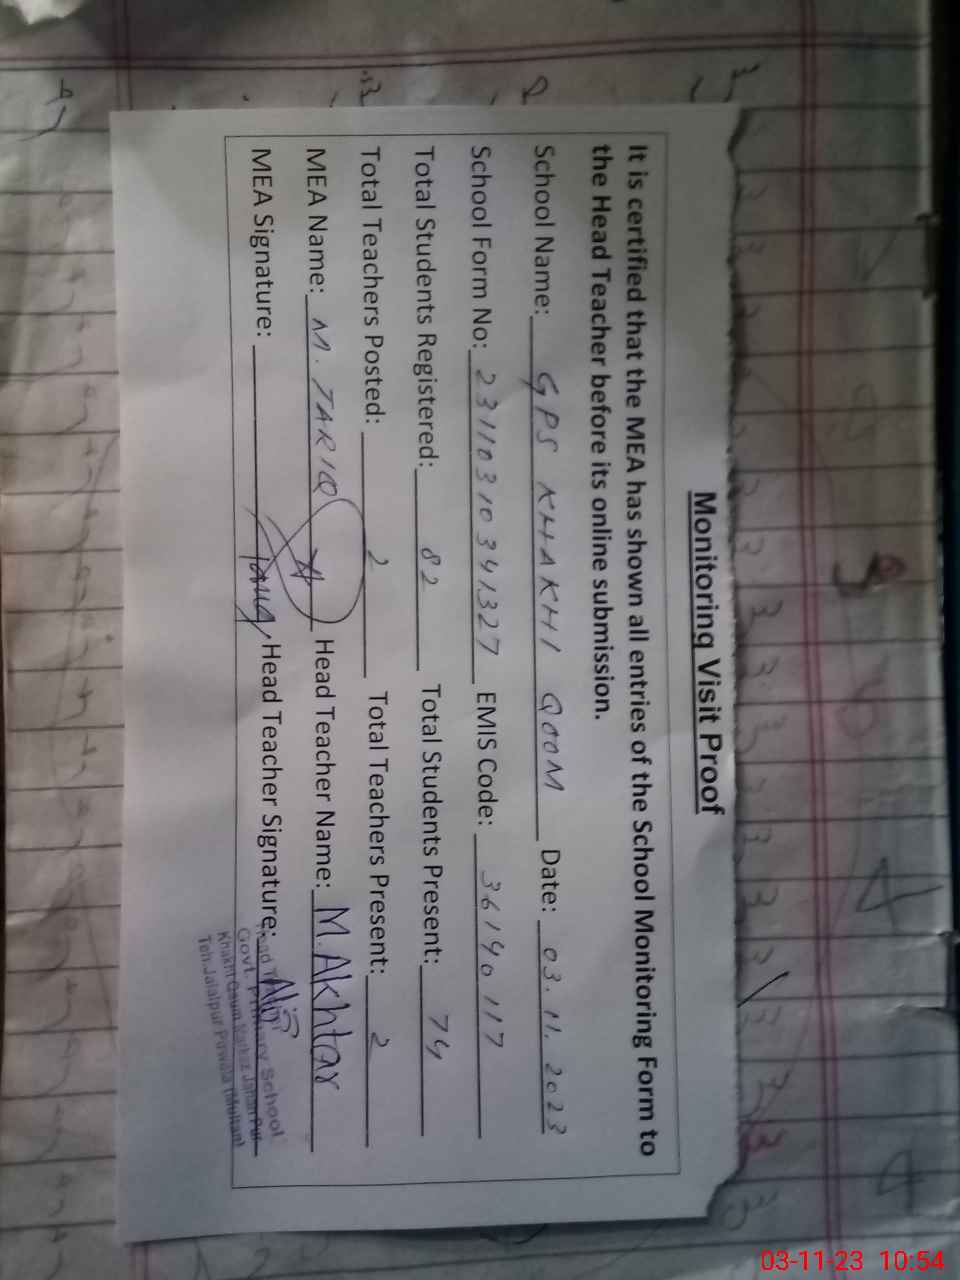 Monitoring Visit Proof
It is certified that the MEA has shown all entries of the School Monitoring Form to
the Head Teacher before its online submission.
School Name: GPS KHAKHI QOOM Date: 03.11.2023
School Form No: 23110310341327 EMIS Code: 36140117
Total Students Registered: 82 Total Students Present: 74
Total Teachers Posted: 2 Total Teachers Present: 2
MEA Name: M. TARIQ Head Teacher Name: M. Akhtar
MEA Signature: Head Teacher Signature:
Head Teacher
Govt. Primary School
Khakhi Qoum Markaz Jahan Pur
Teh: Jalalpur Pirwala (Multan)
03-11-23 10:54